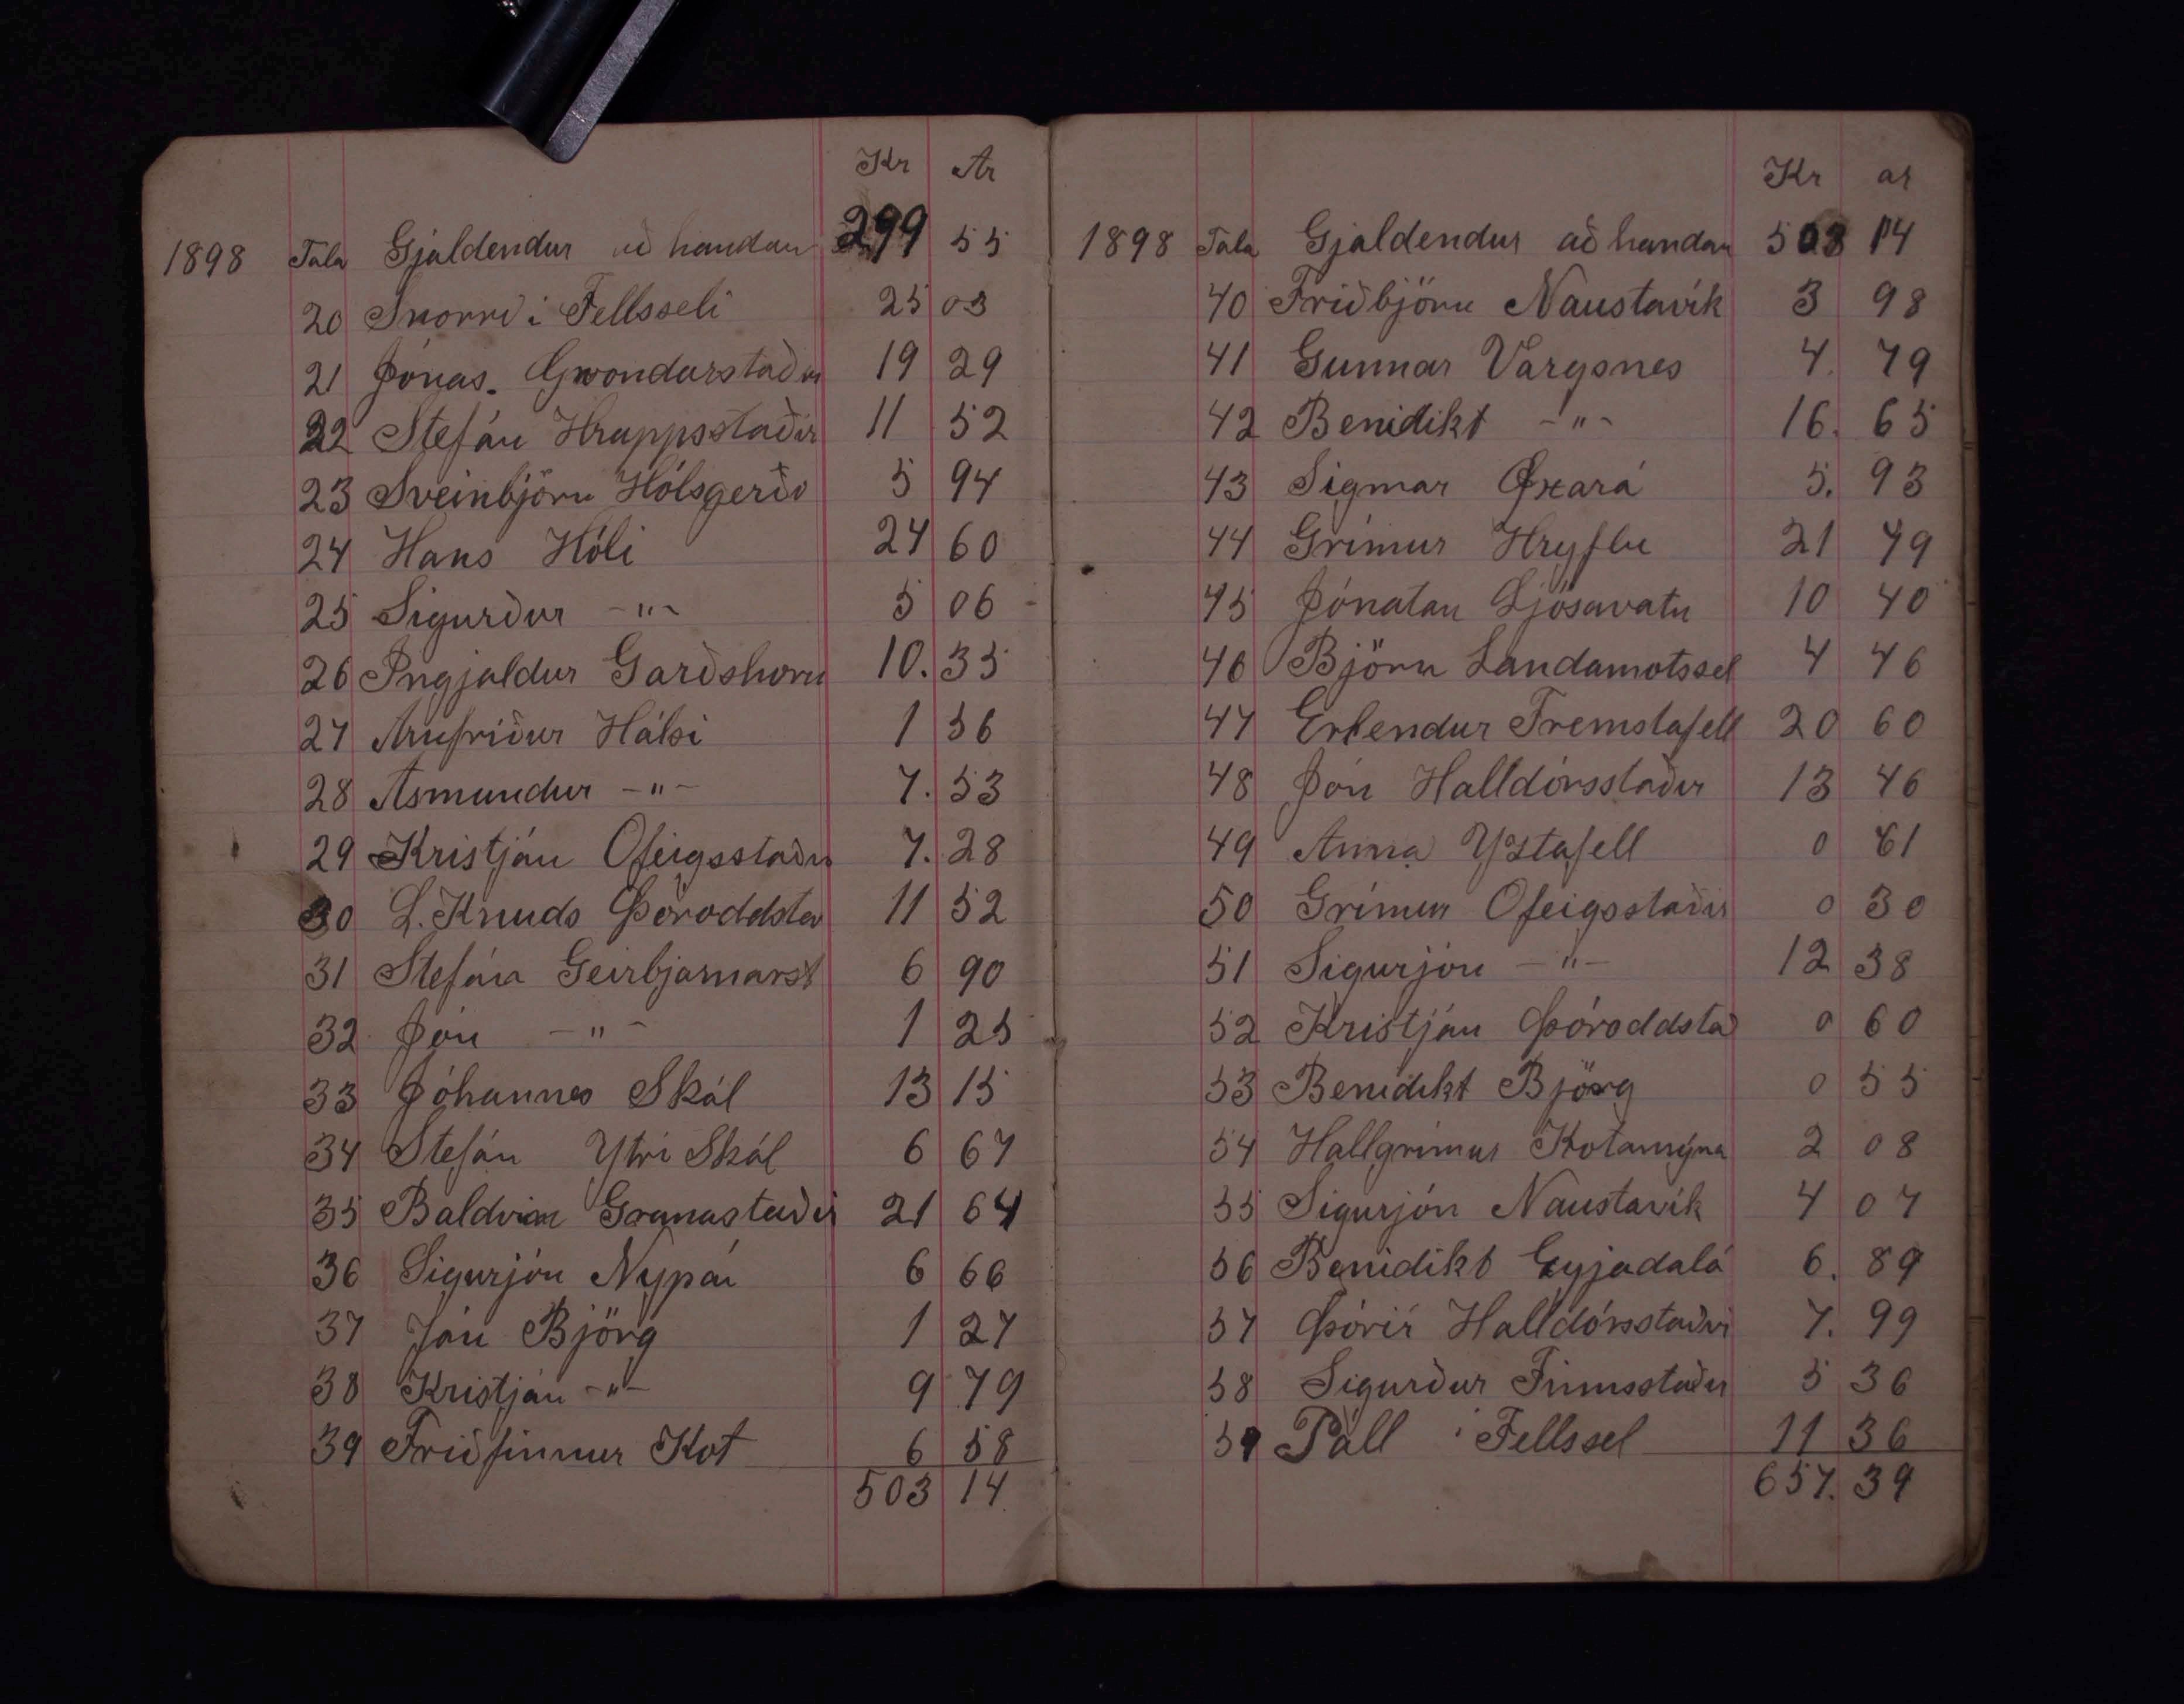 Kr Ar
1898 Tala Gjaldendur að handan 299 55
20 Snorri í Fellsseli 25 03
21 Jónas. Gvondarstaðir 19 29
22 Stefán Hrappsstaðir 11 52
23 Sveinbjörn Hólsgerði 5 94
24 Hans Hóli 24 60
25 Sigurður -"- 5 06
26 Ingjaldur Garðshorn 10. 35
27 Arnfríður Hálsi 1 56
28 Asmundur -"- 7. 53
29 Kristján Ofeigsstaðir 7. 28
30 L. Knuds Þóroddstað 11 52
31 Stefán Geirbjarnarst 6 90
32 Jón -"- 1 25
33 Jóhannes Skál 13 15
34 Stefán Ytri Skál 6 67
35 Baldvin Granastaðir 21 64
36 Sigurjón Nypá 6 66
37 Jón Björg 1 27
38 Kristján -"- 9 79
39 Friðfinnur Kot 6 58
503 14
Kr ar
1898 Tala Gjaldendur að handan 503 14
40 Friðbjörn Naustavík 3 98
41 Gunnar Vargsnes 4. 79
42 Benidikt -"- 16. 65
43 Sigmar Øxará 5. 93
44 Grímur Hryflu 21 49
45 Jónatan Ljósavatn 10 40
46 Björn Landamotssel 4 46
47 Erlendur Fremstafell 20 60
48 Jón Halldórsstaðir 13 46
49 Anna Yztafell 0 61
50 Grímur Ofeigsstaðir 0 30
51 Sigurjón -"- 12 38
52 Kristján Þóroddstað 0 60
53 Benidikt Björg 0 55
54 Hallgrímur Kotamýra 2 08
55 Sigurjón Naustavík 4 07
56 Benidikt Eyjadalá 6. 89
57 Þórir Halldórsstaðir 7. 99
58 Sigurður Finnsstaðir 5 36
59 Páll í Fellssel 11 36
657. 39